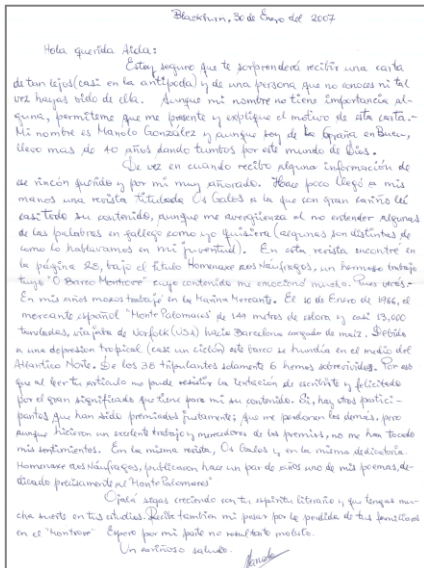 Blackburn, 30 de Enero del 2007
Hola querida Aida:
Estoy seguro que te sorprenderá recibir una carta
de tan lejos (casi en la antípoda) y de una persona que no conoces ni tal
vez hayas oido de ella. Aunque mi nombre no tiene importancia al-
guna, permíteme que me presente y explique el motivo de esta carta.-
Mi nombre es Manolo González y aunque soy de la Graña en Bueu,
llevo mas de 40 años dando tumbos por este mundo de Dios.
De vez en cuando recibo alguna información de
ese rincón querido y por mi muy añorado. Hace poco llegó a mis
manos una revista titulada Os Galos a la que con gran cariño leí
casi todo su contenido, aunque me avergüenza al no entender algunas
de las palabras en gallego como yo quisiera (algunas son distintas de
como lo hablabamos en mi juventud). En esta revista encontré en
la página 28, bajo el título "Homenaxe aos Náufragos, un hermoso trabajo
tuyo "O Barco Montrove" cuyo contenido me emocionó mucho. Pues verás.-
En mis años mozos trabajé en la Marina Mercante. El 10 de Enero de 1966, el
mercante español "Monte Palomares" de 144 metros de eslora y casi 13,000
toneladas, viajaba de Norfolk (USA) hacia Barcelona cargado de maiz. Debido
a una depresion tropical (casi un ciclón) este barco se hundía en el medio del
Atlantico Norte. De los 38 tripulantes solamente 6 hemos sobrevivido. Por eso
que al leer tu articulo no pude resistir la tentación de escribirte y felicitarte
por el gran significado que tiene para mi su contenido. Si, hay otros partici-
pantes que han sido premiados justamente; que me perdonen los demás, pero
aunque hicieron un excelente trabajo y merecedores de los premios, no me han tocado
mis sentimientos. En la misma revista, Os Galos y en la misma dedicatoria
Homenaxe aos Náufragos, publicaron hace un par de años uno de mis poemas, de-
dicado precisamente al "Monte Palomares"
Ojalá sigas creciendo con tu espíritu literario y que tengas mu-
cha suerte en tus estudios. Recibe tambien mi pesar por la perdida de tus familiares
en el "Montrove" Espero por mi parte no resultarte molesto.
Un cariñoso saludo.
Manolo